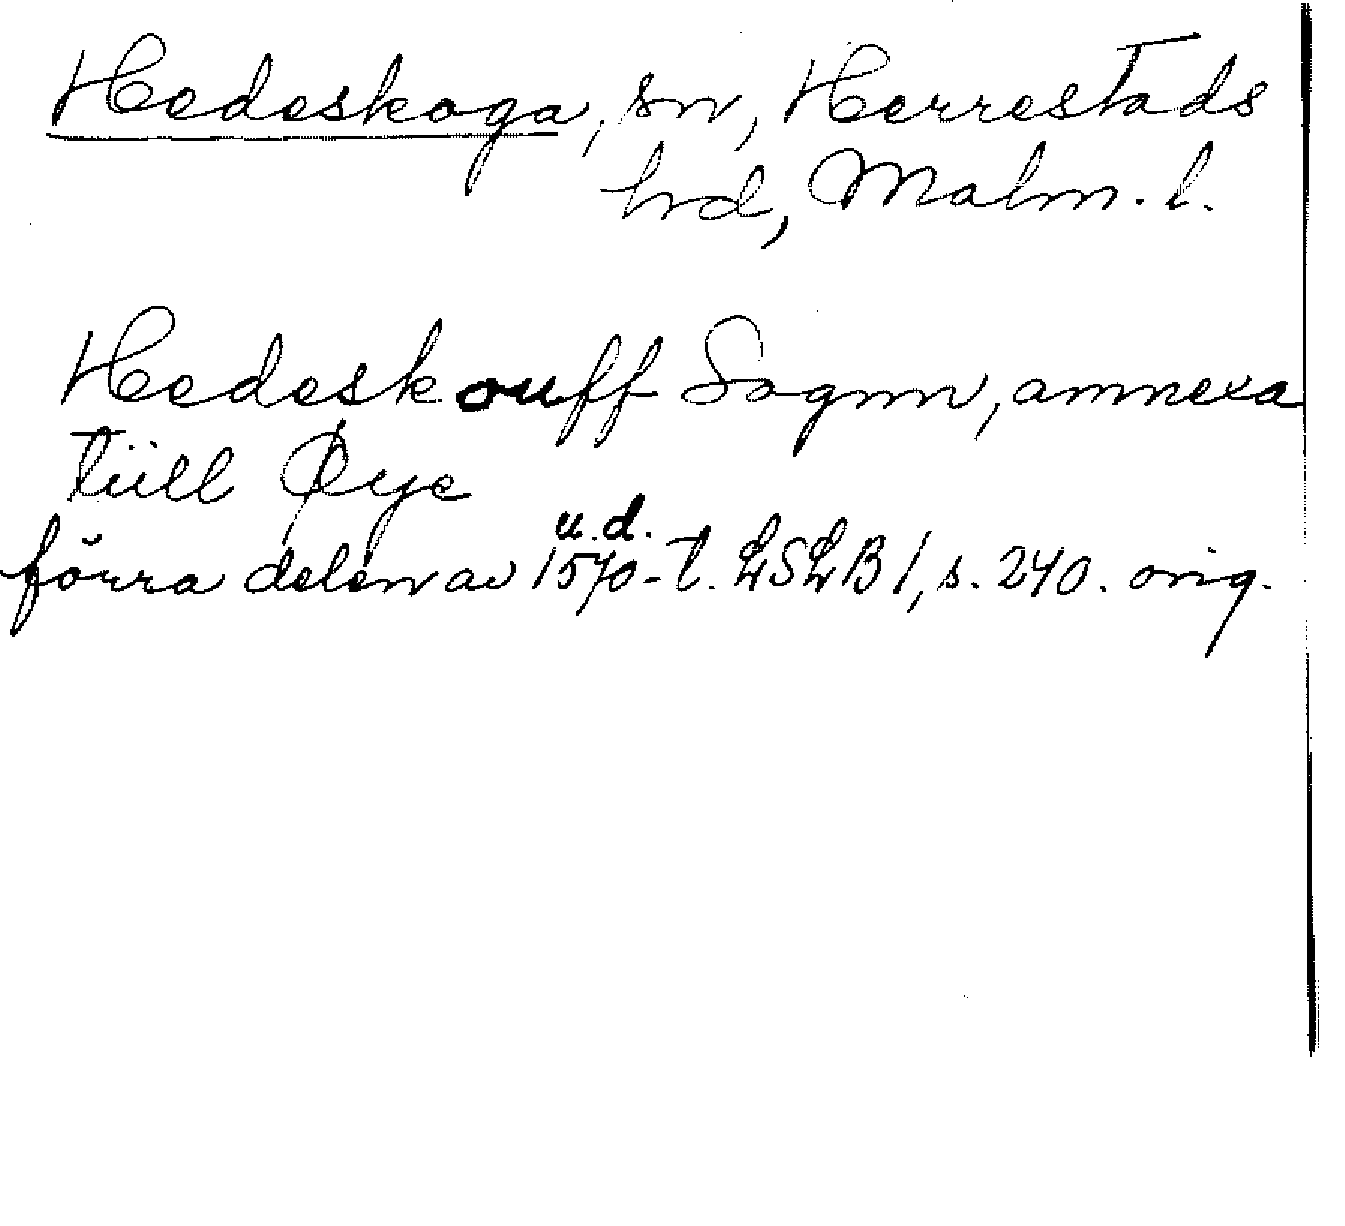 Hedeskoga, sn, Herrestads
hd, Malm. l.
Hedeskouff Sognn, annexa
tiill Øye
u. d.
förra delen av 1570-t. LSLB 1, s. 240. orig.